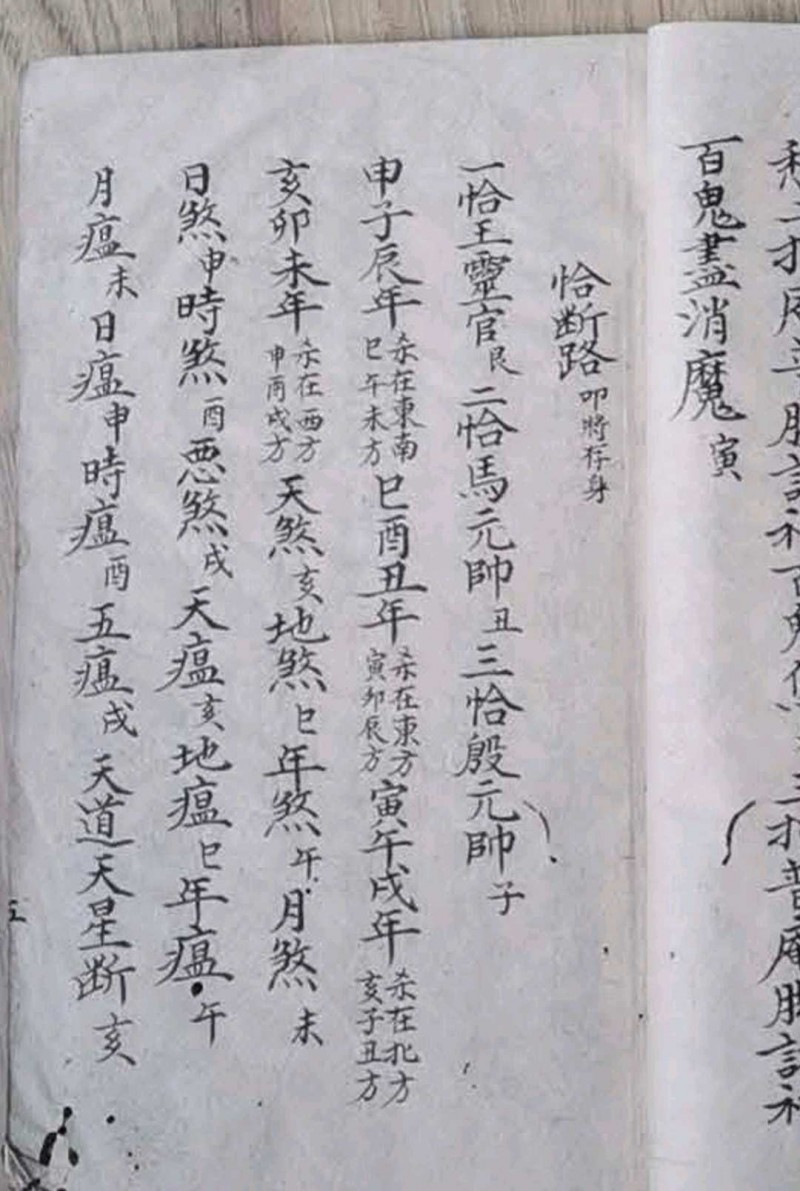 百鬼盡消魔寅
恰断路叩將存身
一恰王靈官艮二恰馬元帥丑三恰殷元帥子
申子辰年杀在東南巳午未方巳酉丑年杀在東方寅卯辰方寅午戌年杀在北方亥子丑方
亥卯未年杀在西方申酉戌方天煞亥地煞巳年煞午月煞未
日煞申時煞酉惡煞戌天瘟亥地瘟巳年瘟午
月瘟未日瘟申時瘟酉五瘟戌天道天星断亥